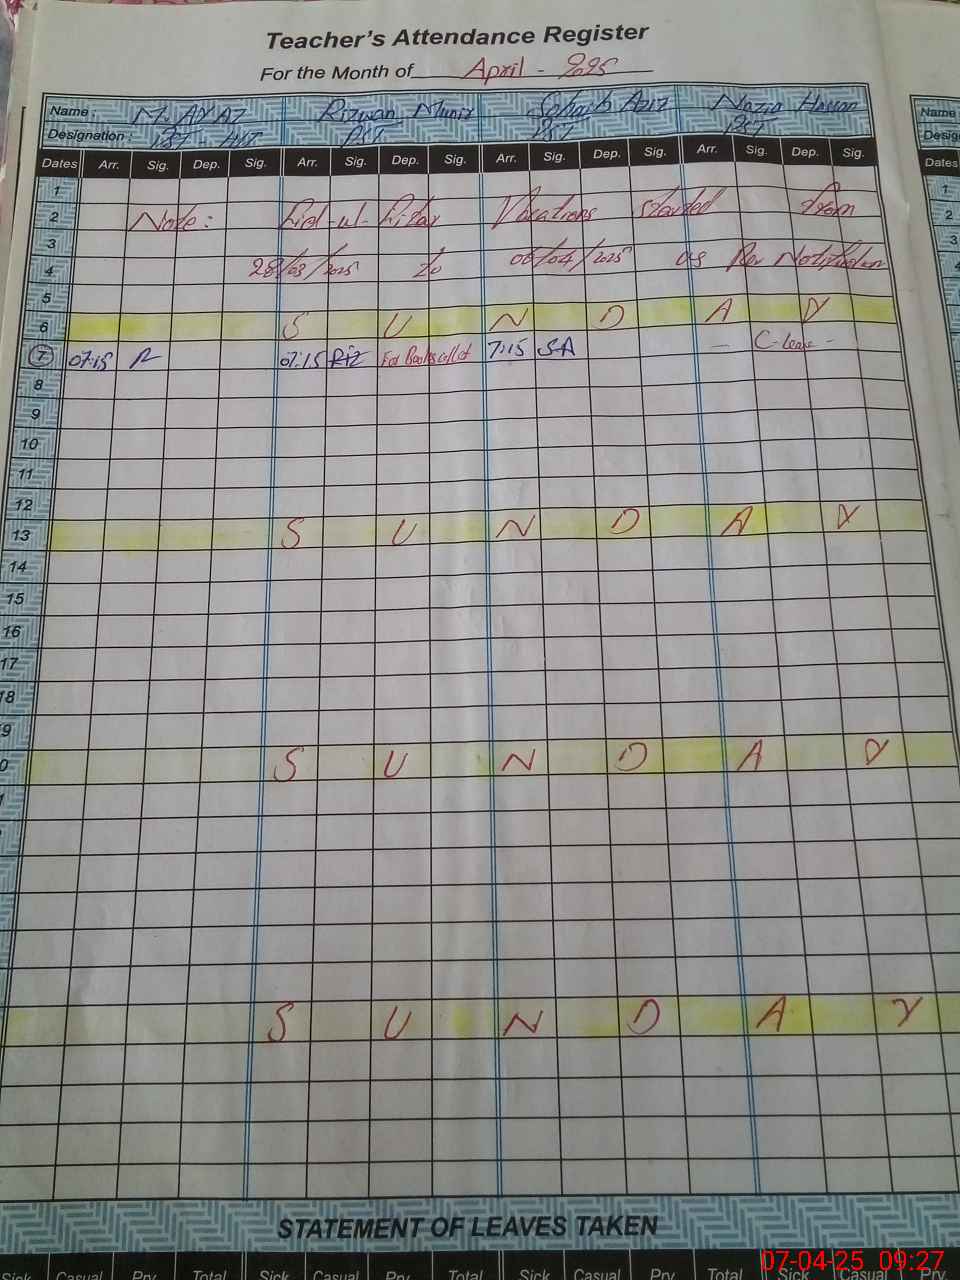 Teacher's Attendance Register
For the Month of April - 2025
Name: M. AYAZ Rizwan Munir Sohaib Aziz Nazia Hassan Name:
Designation: PST - HT PST PST PST
Dates Arr. Sig. Dep. Sig. Arr. Sig. Dep. Sig. Arr. Sig. Dep. Sig. Arr. Sig. Dep. Sig. Dates
1 1
2 Note: Eid-ul-Fitar Vacations started from 2
3 3
4 28/03/2025 to 06/04/2025 as Per Notification
5
6 S U N D A Y
7 07:15 07:15 Riz For Books collect 7:15 SA - C-leave -
8
9
10
11
12
13 S U N D A Y
14
15
16
17
18
9
0 S U N D A Y
S U N D A Y
STATEMENT OF LEAVES TAKEN
Sick Casual Prv. Total Sick Casual Prv. Total Sick Casual Prv. Total Sick Casual Prv.
07-04-25 09:27